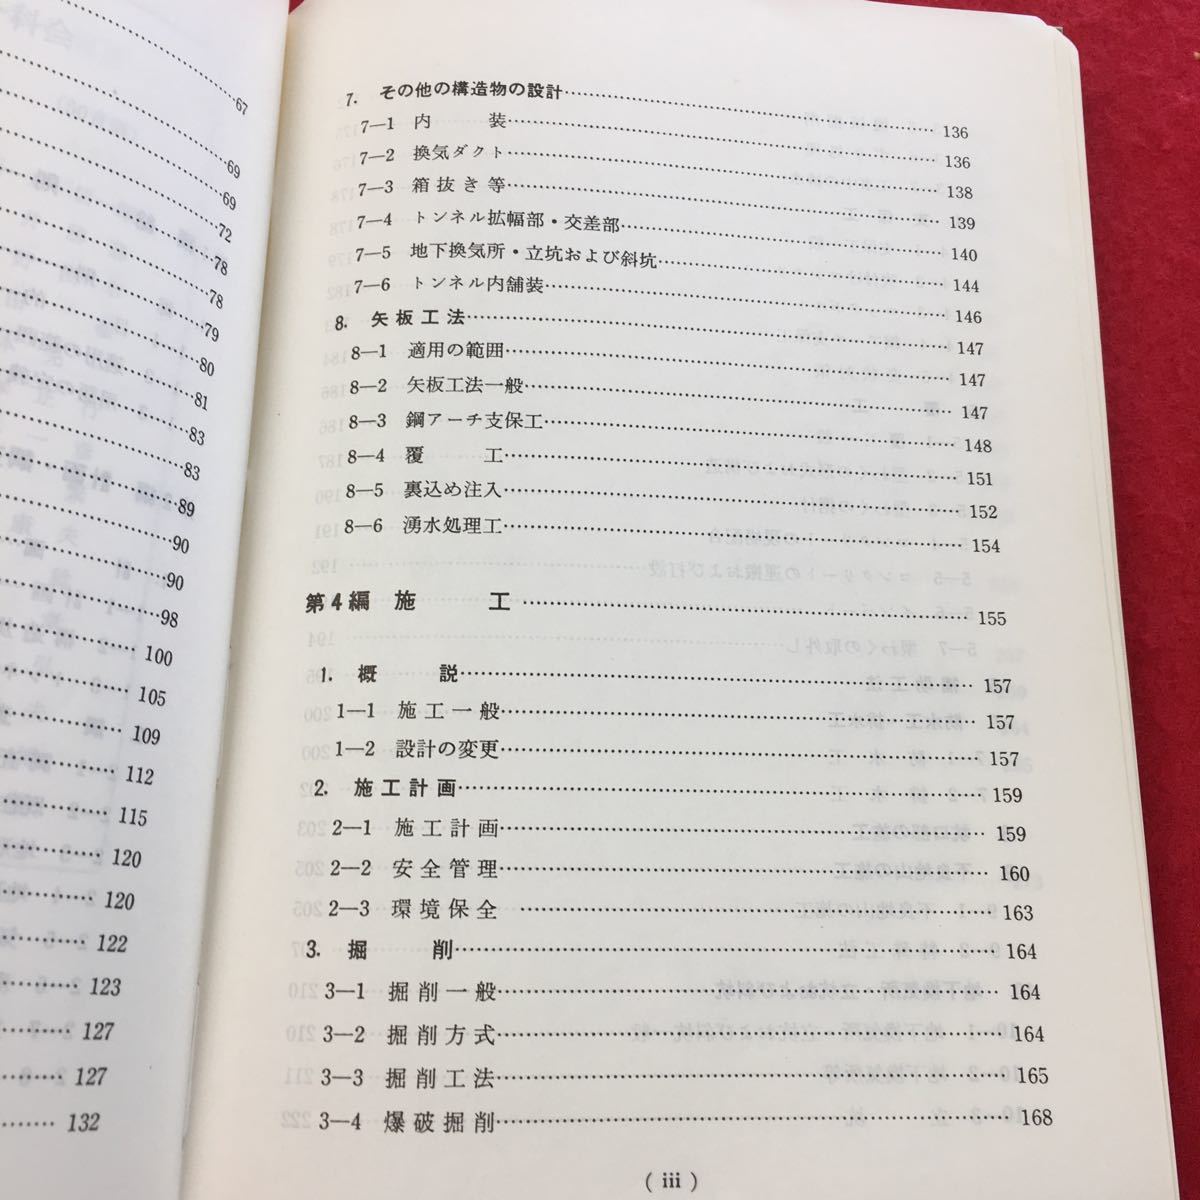 67
69
69
72
78
78
79
80
81
83
83
89
90
90
98
100
105
109
112
115
120
120
122
123
127
127
132
7. その他の構造物の設計……136
7—1 内　　装……136
7—2 換気ダクト……138
7—3 箱抜き等……139
7—4 トンネル拡幅部・交差部……140
7—5 地下換気所・立坑および斜坑……144
7—6 トンネル内舗装……146
8. 矢板工法……147
8—1 適用の範囲……147
8—2 矢板工法一般……147
8—3 鋼アーチ支保工……148
8—4 覆　　工……151
8—5 裏込め注入……152
8—6 湧水処理工……154
第4編 施　　工……155
1. 概　　説……157
1—1 施工一般……157
1—2 設計の変更……157
2. 施工計画……159
2—1 施工計画……159
2—2 安全管理……160
2—3 環境保全……163
3. 掘　　削……164
3—1 掘削一般……164
3—2 掘削方式……164
3—3 掘削工法……165
3—4 爆破掘削……168
( iii )